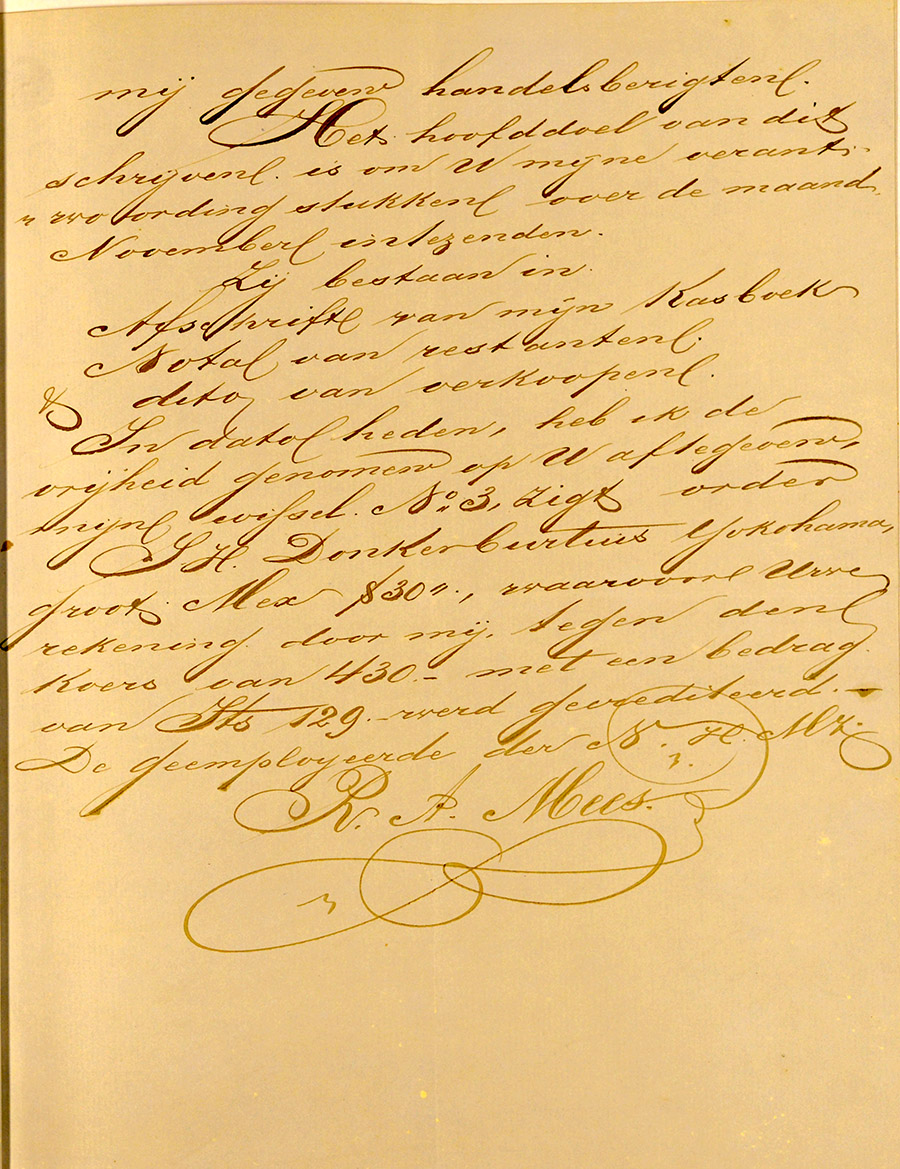 mij gegeven handelsberigten.
Het hoofddoel van dit
schrijven is om U mijne verant-
" woording stukken over de maand
November intezenden.
Zij bestaan in
Afschrift van mijn Kasboek
Nota van restanten.
& dito van verkoopen.
In dato heden, heb ik de
vrijheid genomen op U aftegeven,
mijn wissel. No. 3, zigt order
J H. Donker Curtius Yokohama,
groot Mex $30"., waarvoor Uwe
rekening door mij, tegen den
koers van 430.- met een bedrag
van Its 129.- werd gecrediteerd.-
De geemployeerde der N. H. Mij.
R. A. Mees.